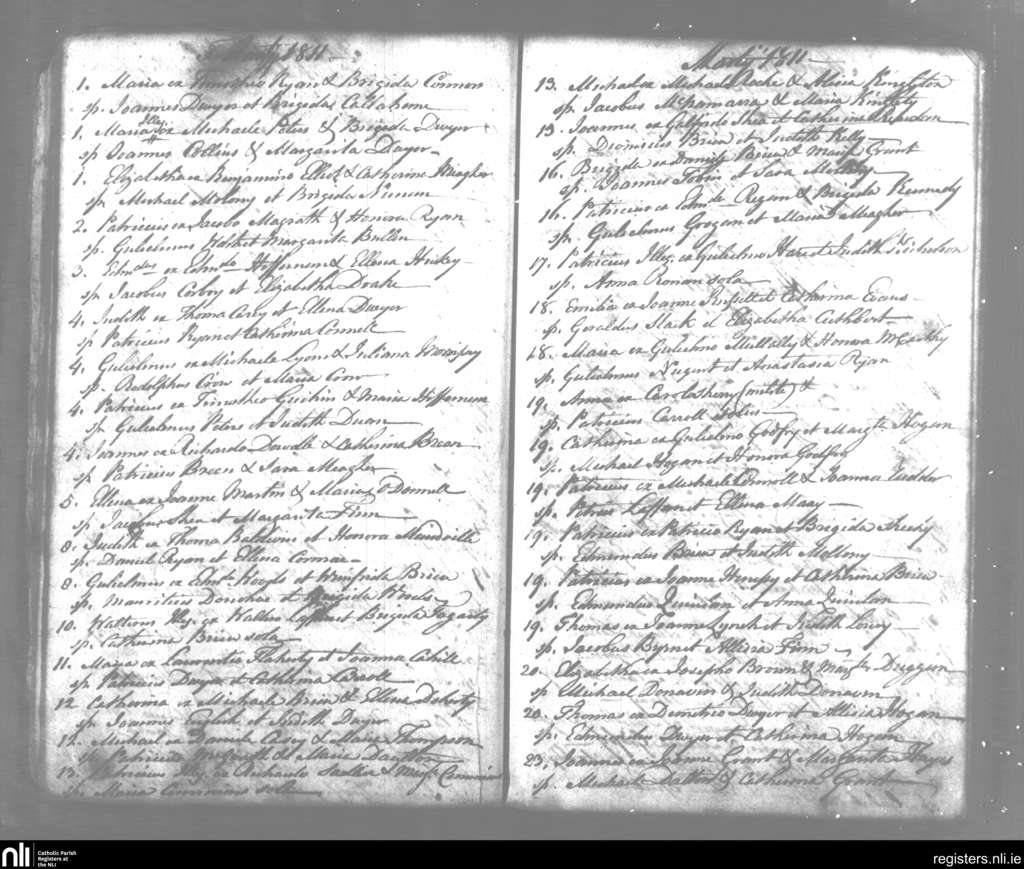 1811
1. Maria ex Timotheo Ryan & Brigida Connors
sp. Joannes Dwyer et Brigida Callahane
1. Maria Illeg. ex Michaele Peters & Brigida Dwyer
sp Joannes Collins & Margarita Dwyer
1. Elizabetha ex Benjamino Elliot & Catherina Meagher
sp. Michael Molony et Brigida
2. Patricius ex Jacobo Magrath & Honora Ryan
sp. Gulielmus et Margarita Bullen
3. Edmdus ex Edmdo Heffernan & Ellena Hickey
sp Jacobus Corboy et Elizabetha Drake
4. Judith ex Thoma Carey et Ellena Dwyer
sp Patricius Ryan et Catherina Connell
4. Gulielmus ex Michaele Lyons & Juliana
sp. Rodolphus Crow et Maria Crow
4. Patricius ex Timotheo & Maria Heffernan
sp Gulielmus Peters et Judith Duan
4. Joannes ex Richardo Dowdle & Catherina Breen
sp Patricius Breen & Sara Meagher
5. Ellena ex Joanne Martin & Maria O'Donnell
sp Jacobus Shea et Margarita Finn
8. Judith ex Thoma Baldwin et Honora Mandeville
sp. Daniel Ryan et Ellena
8. Gulielmus ex Edmdo Woods et Winifrida Brien
sp. Mauritius Donohoe et Brigida Woods
10. Illeg. ex et Brigida Fogarty
sp. Catherina Brien sola
11. Maria ex Laurentio Flaherty et Joanna Cahill
sp. Patricius Dwyer et Catherina Carroll
12 Catherina ex Michaele Brien & Ellena Doherty
sp Joannes English et Judith Dwyer
12. Michael ex Daniele Casey & Maria Thompson
sp Patricius Magrath et Maria
13. Patricius Illeg. ex Richardo Sadlier & Margt. Cummins
sp. Maria Cummins sola
1811
13. Michael ex Michaele & Maria
sp Jacobus McNamarra & Maria Kinnealy
13. Joannes ex Shea et Catherina
sp. Dionisius Brien et Judith Kelly
16. Brigida ex Daniele Brien & Maria Grant
sp. Joannes Tobin et Sara
16. Patricius ex Edmdo Regan & Brigida Kennedy
sp. Gulielmus Grogan et Maria Meagher
17. Patricius Illeg. ex Gulielmo Hare et Judith Nicholson
sp. Anna Ronan sola
18. Emilia ex Joanne Russell et Catharina Evans
sp. Geraldus Slack et Elizabetha Cuthbert
18. Maria ex Gulielmo Mullally & Honora McCarthy
sp. Gulielmus Nugent et Anastasia Ryan
19. Anna ex Carolo (milite) &
sp. Patricius Carroll solus
19. Catherina ex Gulielmo Godfry et Margta Hogan
sp. Michael Hogan et Honora Godfry
19. Patricius ex Michaele Connell & Joanna
sp. Petrus Leffan et Ellena Maay
19. Patricius ex Patricio Ryan et Brigida Sheehy
sp. Edmundus Brien et Judith Mollony
19. Patricius ex Joanne Henesy et Catherina Brien
sp. Edmundus Quinlan et Anna Quinlan
19. Thomas ex Joanne Lynch et Judith Lowry
sp. Jacobus Byrne et Allisia Finn
20. Elizabetha ex Josepho Brown & Margta Duggan
sp Michael Donavin & Judith Donavin
20. Thomas ex Demetrio Dwyer et Allisia Hogan
sp. Edmundus Dwyer et Catherina Hogan
23. Joannes ex Joanne Grant & Margarita Hayes
sp. Michael Dalton & Catherina Grant
nli
Catholic Parish
Registers at
the NLI
registers.nli.ie